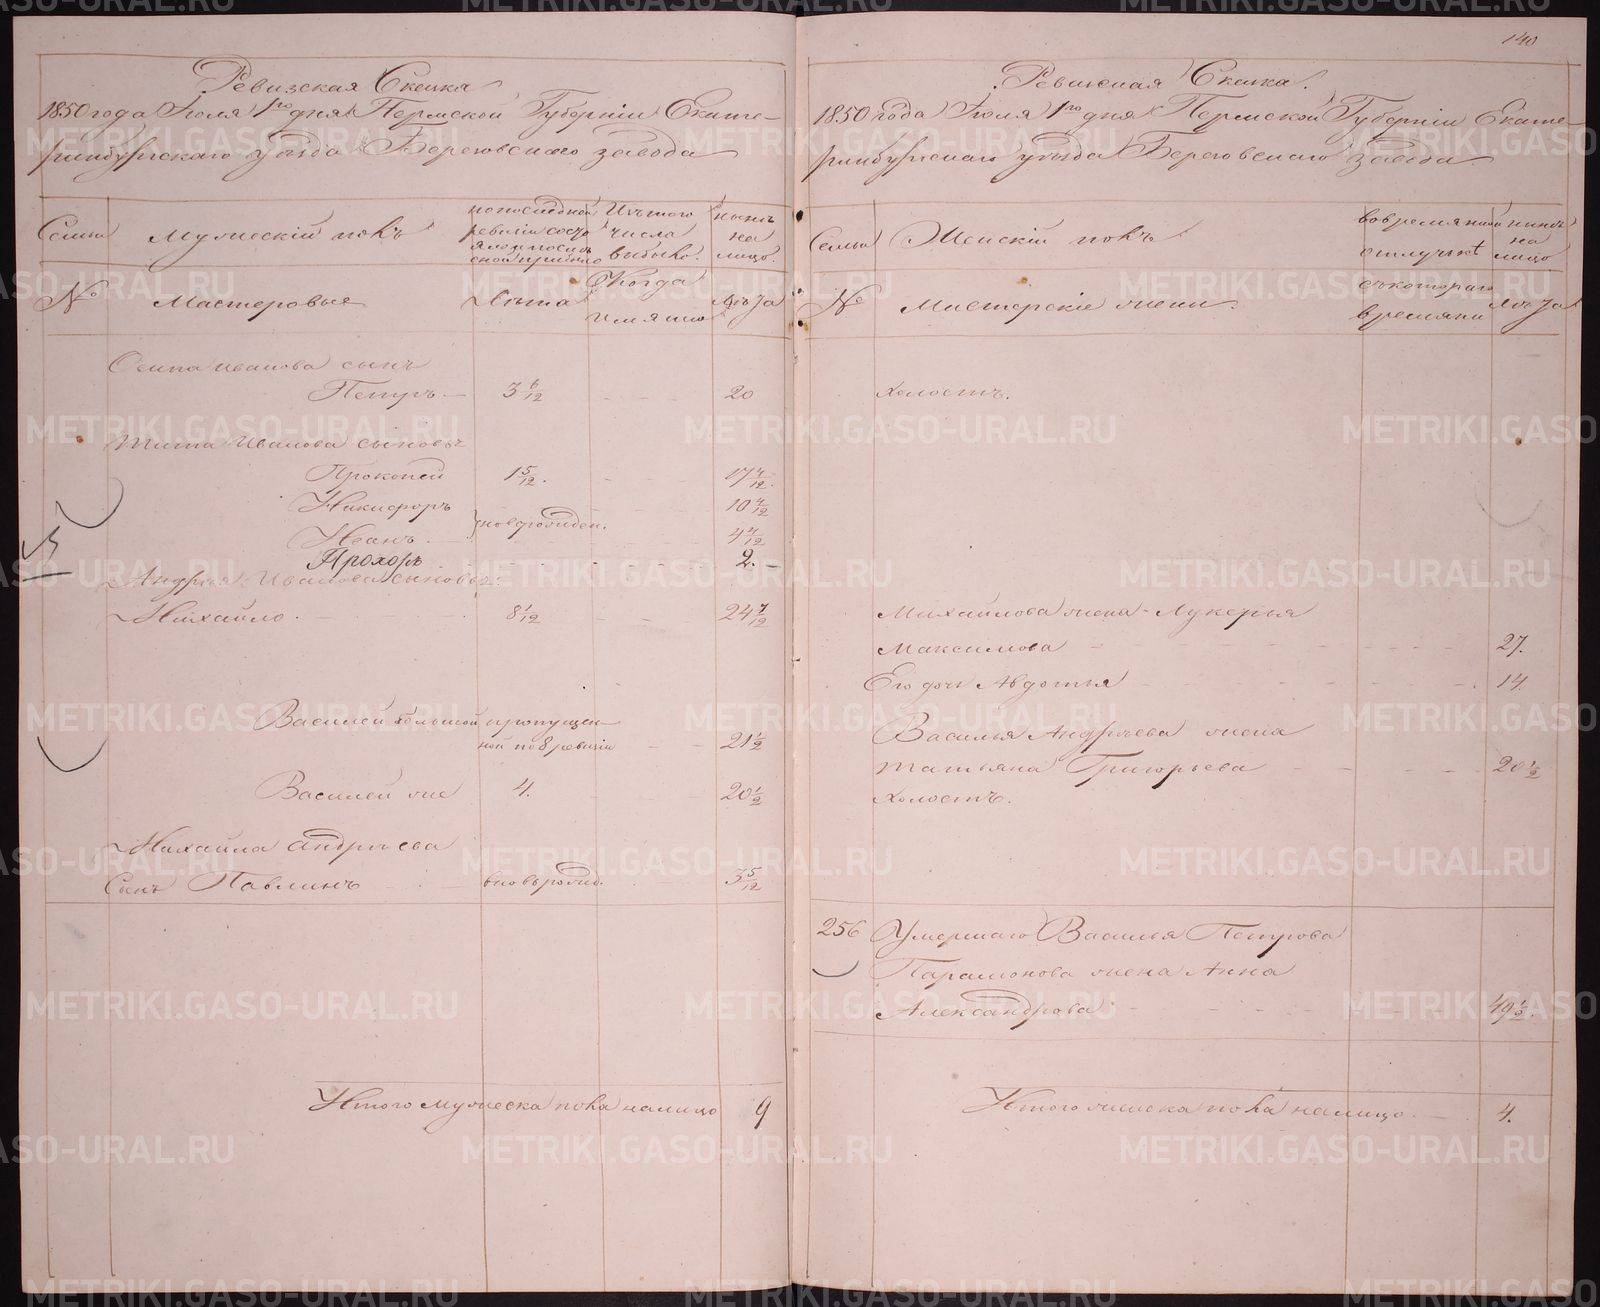 Ревизская Сказка
1850 года Іюля 1го дня Пермской Губерніи Екате-
ринбургскаго уезда Березовскаго завода
Семьи
Мужескій полъ
по последней
ревизіи состо
яло и после
оной прибыло
Изъ того
числа
выбыло.
ныне
на
лицо.
№
Мастеровые
Лета
Когда
имянно
Лета
Осипа Иванова сынъ
Петръ. 3 6/12 20
Тита Иванова сыновья
Прокопей 1 5/12. 17 4/12.
Никифоръ 10 4/12
новорожден.
Иванъ. 4 4/12
Прохоръ 2.
Андрея Иванова сыновья:
Михайло. 8 1/12 24 7/12
Василей большой пропущен-
ной по 8 ревизіи 21 1/2
Василей же 4. 20 1/2
Михайла Андреева
Сынъ Павлинъ вновь рожд. 3 5/12
Итого мужеска пола налицо 9
140
Ревизская Сказка.
1850 года Іюля 1го дня Пермской Губерніи Екате-
ринбургскаго уезда Березовскаго завода
Семьи
Женскій полъ
во временной
отлучке
ныне
на
лицо
№
Мастерскіе жены.
съ котораго
времяни
Лета
холостъ.
Михайлова жена Лукерья
Максимова 27.
Его дочь Авдотья 14.
Василья Андреева жена
Татьяна Григорьева 20 1/2
холостъ.
256 Умершаго Василья Петрова
Парамонова жена Анна
Александрова 49 1/2.
Итого женска пола налицо. 4.
METRIKI.GASO-URAL.RU